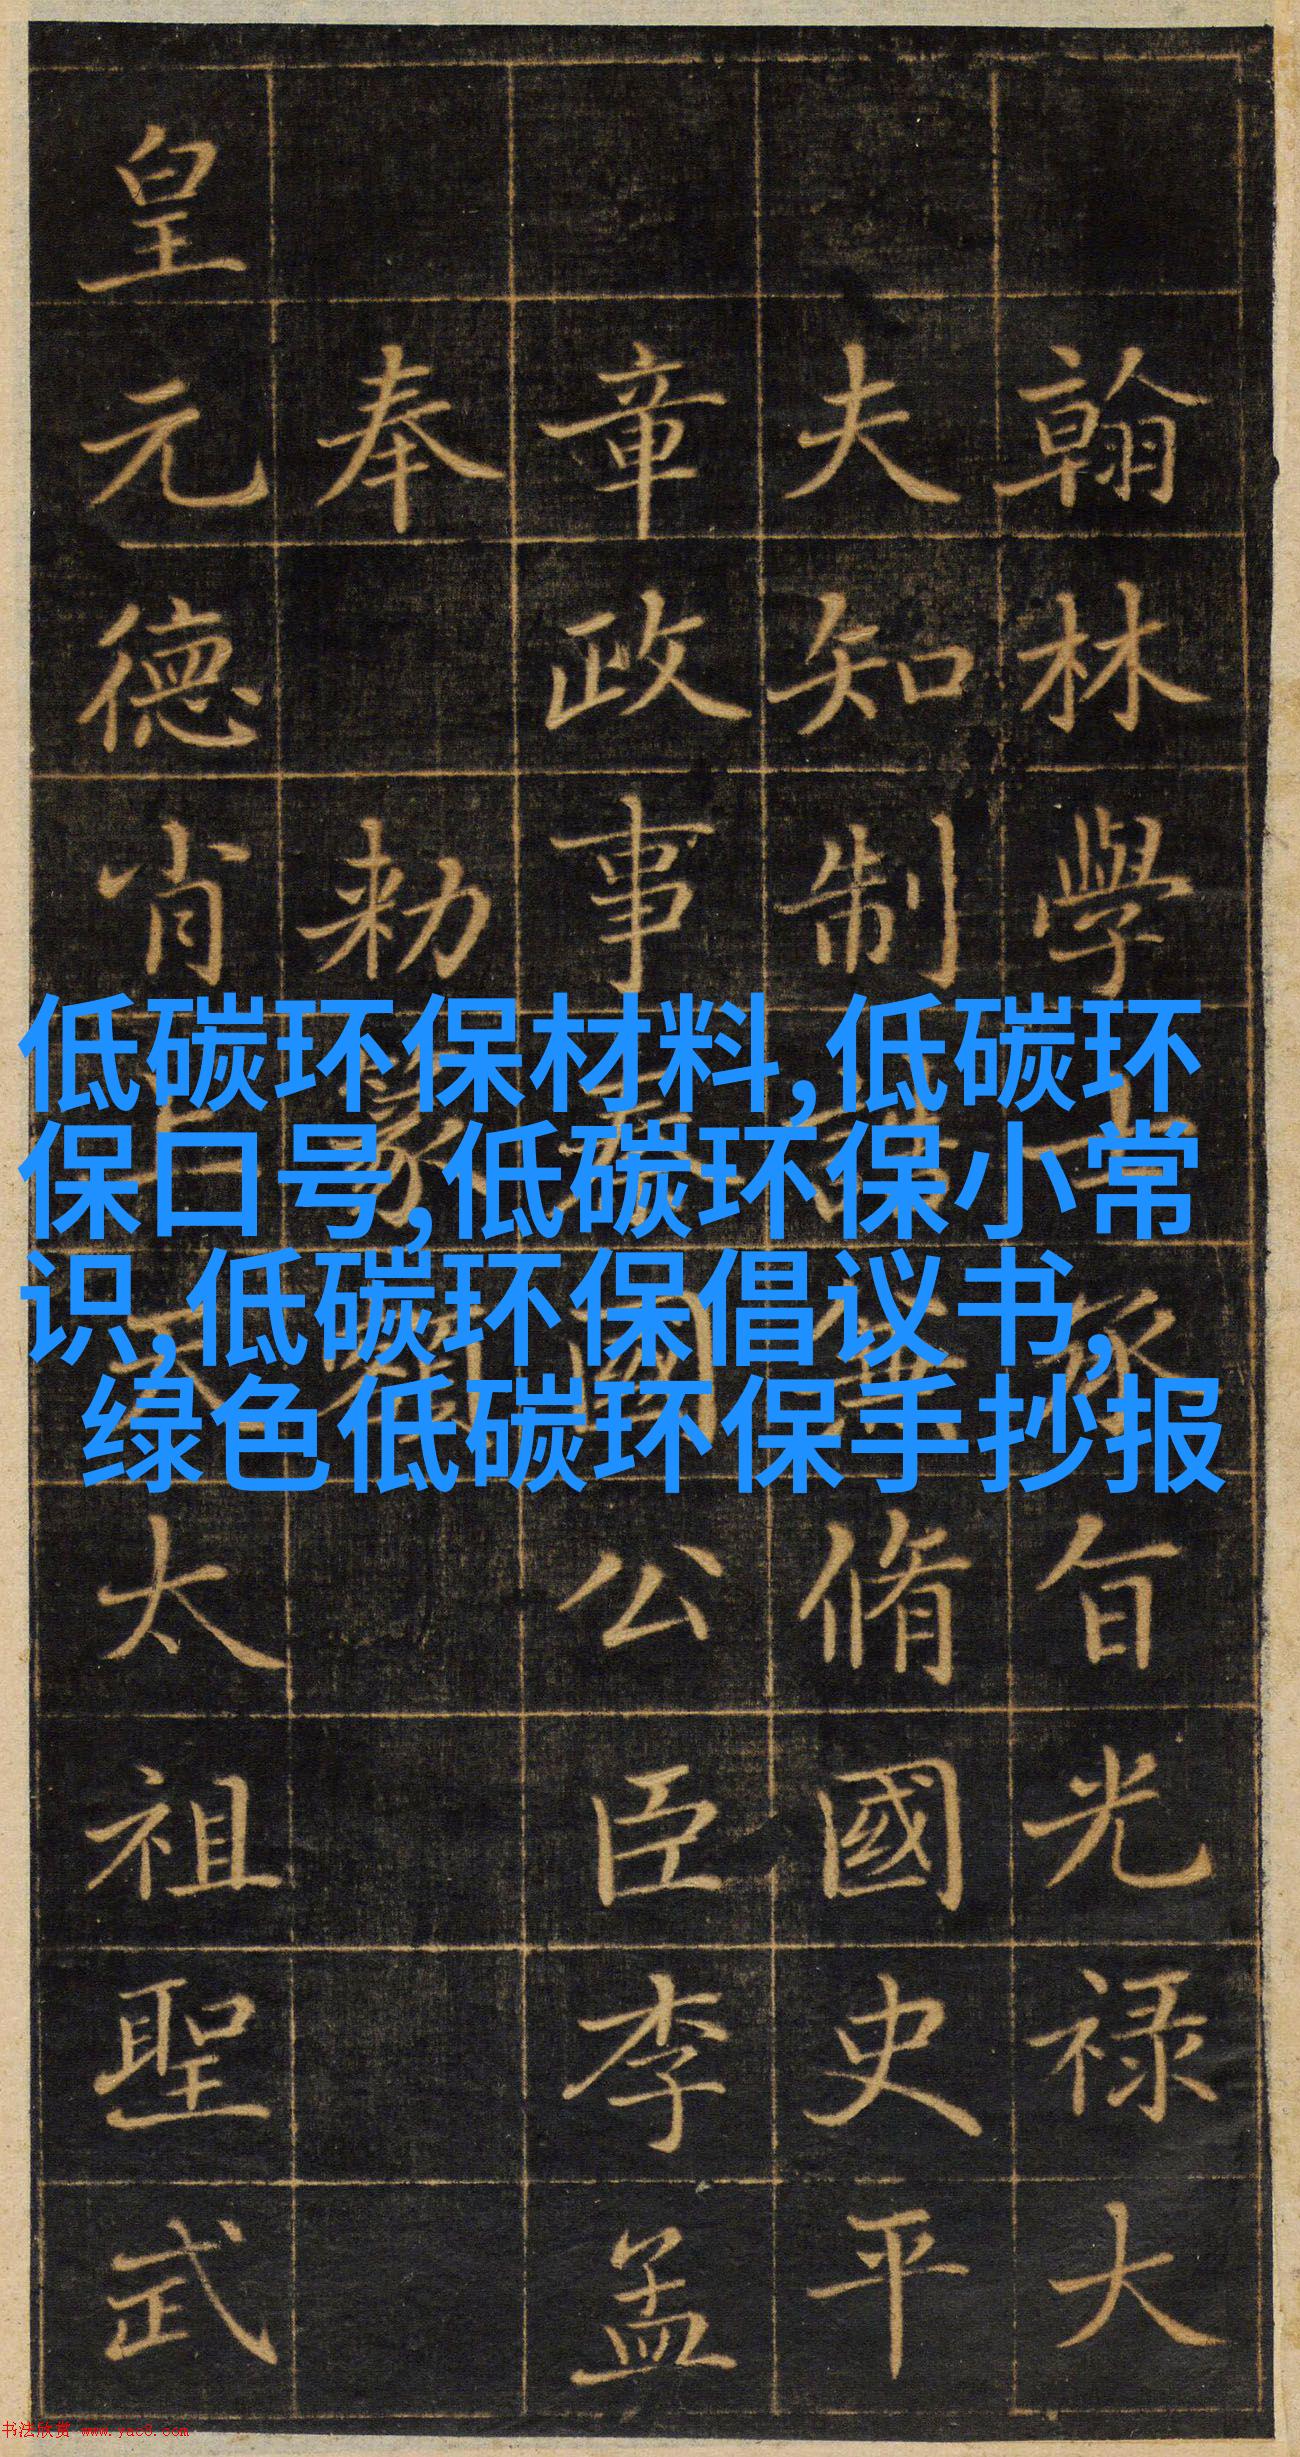 翰林學士承旨光祿大
夫知制誥兼脩國史平
章政事秦國公臣李孟
奉
勑篆額
皇元德肖上天太祖聖武
低碳环保材料,低碳环
保口号,低碳环保小常
识,低碳环保倡议书,
绿色低碳环保手抄报
书法欣赏 www.yac8.com